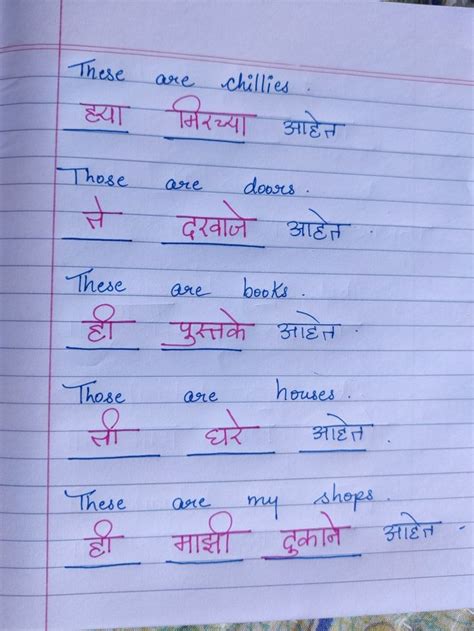 These are chillies.
ह्या मिरच्या आहेत
Those are doors.
ते दरवाजे आहेत.
These are books.
ही पुस्तके आहेत.
Those are houses.
ती घरे आहेत.
These are my shops.
ही माझी दुकाने आहेत.